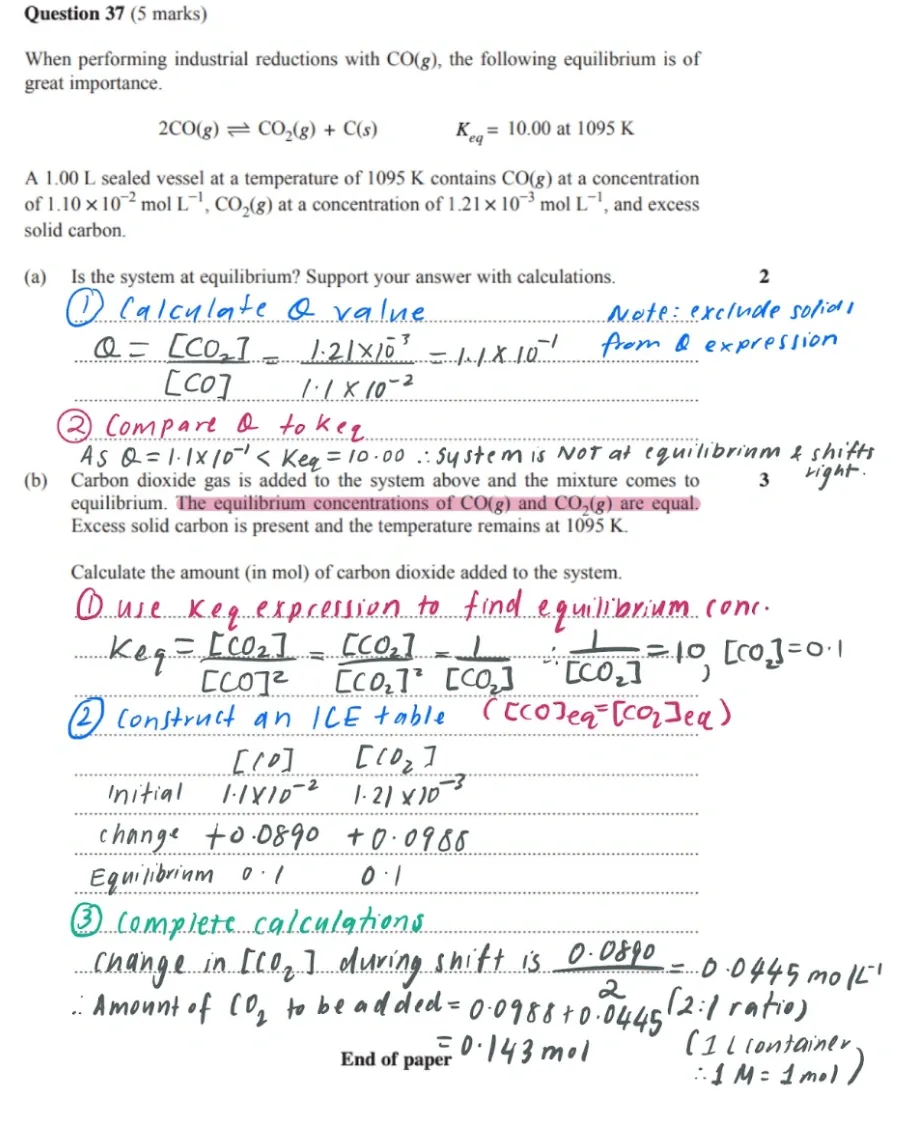 Question 37 (5 marks)
When performing industrial reductions with CO(g), the following equilibrium is of
great importance.
2CO(g) ⇌ CO₂(g) + C(s) K_eq = 10.00 at 1095 K
A 1.00 L sealed vessel at a temperature of 1095 K contains CO(g) at a concentration
of 1.10 × 10⁻² mol L⁻¹, CO₂(g) at a concentration of 1.21 × 10⁻³ mol L⁻¹, and excess
solid carbon.
(a) Is the system at equilibrium? Support your answer with calculations. 2
① Calculate Q value Note: exclude solids
Q = [CO₂]/[CO] = 1.21×10⁻³/1.1×10⁻² = 1.1×10⁻¹ from Q expression
② Compare Q to Keq
As Q = 1.1×10⁻¹ < Keq = 10.00 ∴ System is NOT at equilibrium & shifts
right.
(b) Carbon dioxide gas is added to the system above and the mixture comes to 3
equilibrium. The equilibrium concentrations of CO(g) and CO₂(g) are equal.
Excess solid carbon is present and the temperature remains at 1095 K.
Calculate the amount (in mol) of carbon dioxide added to the system.
① use Keq expression to find equilibrium conc.
Keq = [CO₂]/[CO]² = [CO₂]/[CO₂]² = 1/[CO₂] ∴ 1/[CO₂] = 10, [CO₂] = 0.1
② Construct an ICE table ([CO]eq = [CO₂]eq)
[CO] [CO₂]
Initial 1.1×10⁻² 1.21×10⁻³
change +0.0890 +0.0988
Equilibrium 0.1 0.1
③ Complete calculations
Change in [CO₂] during shift is 0.0890/2 = 0.0445 mol L⁻¹
(2:1 ratio)
∴ Amount of CO₂ to be added = 0.0988 + 0.0445
= 0.143 mol (1 L container,
∴ 1 M = 1 mol)
End of paper